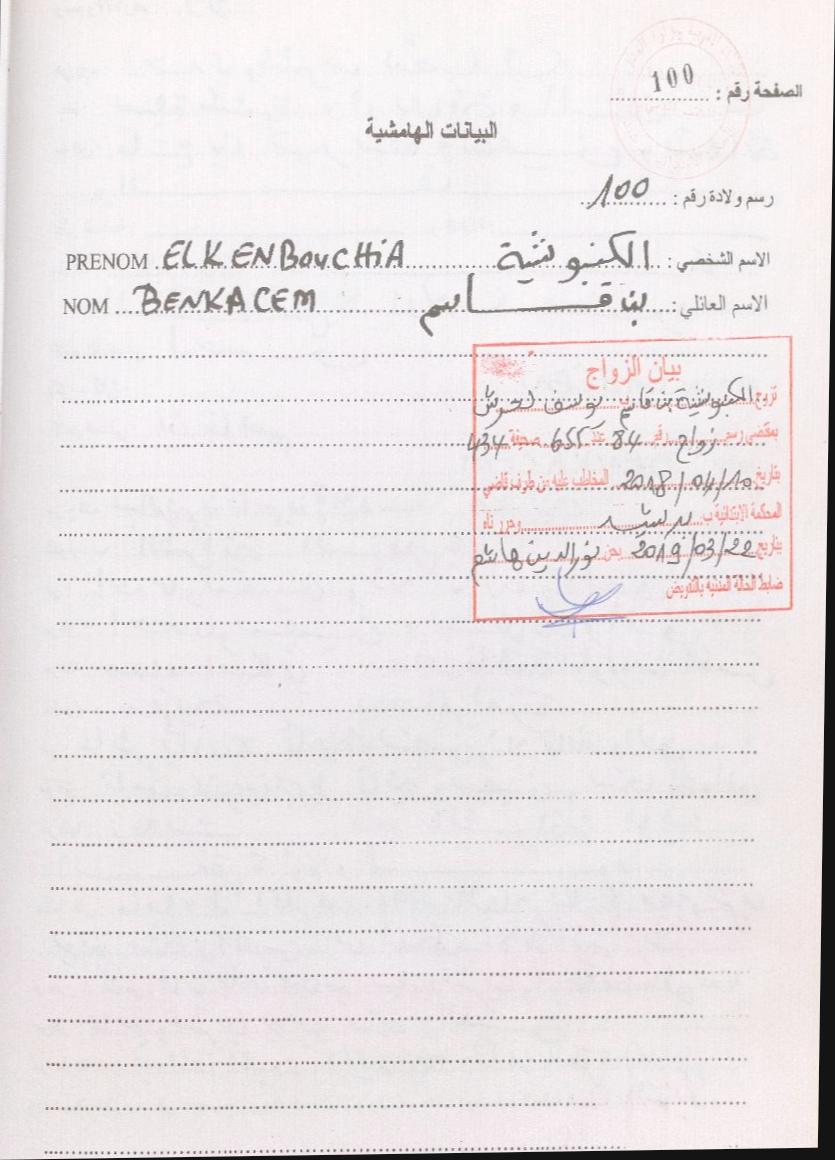 الصفحة رقم : 100
البيانات الهامشية
رسم ولادة رقم : 100
الاسم الشخصي : الكنبوشية PRENOM ELKENBOUCHIA
الاسم العائلي : بن قاسم NOM BENKACEM
بيان الزواج
تزوج الكنبوشية بن قاسم ب يوسف لحرش
بمقتضى رسم زواج رقم 84 عدد 655 صحيفة 434
بتاريخ 2018/04/10 المخاطب عليه من طرف قاضي
المحكمة الابتدائية ب برشيد وحرر ناه
بتاريخ 2019/03/22 نحن نور الدين هاشم
ضابط الحالة المدنية بالتفويض